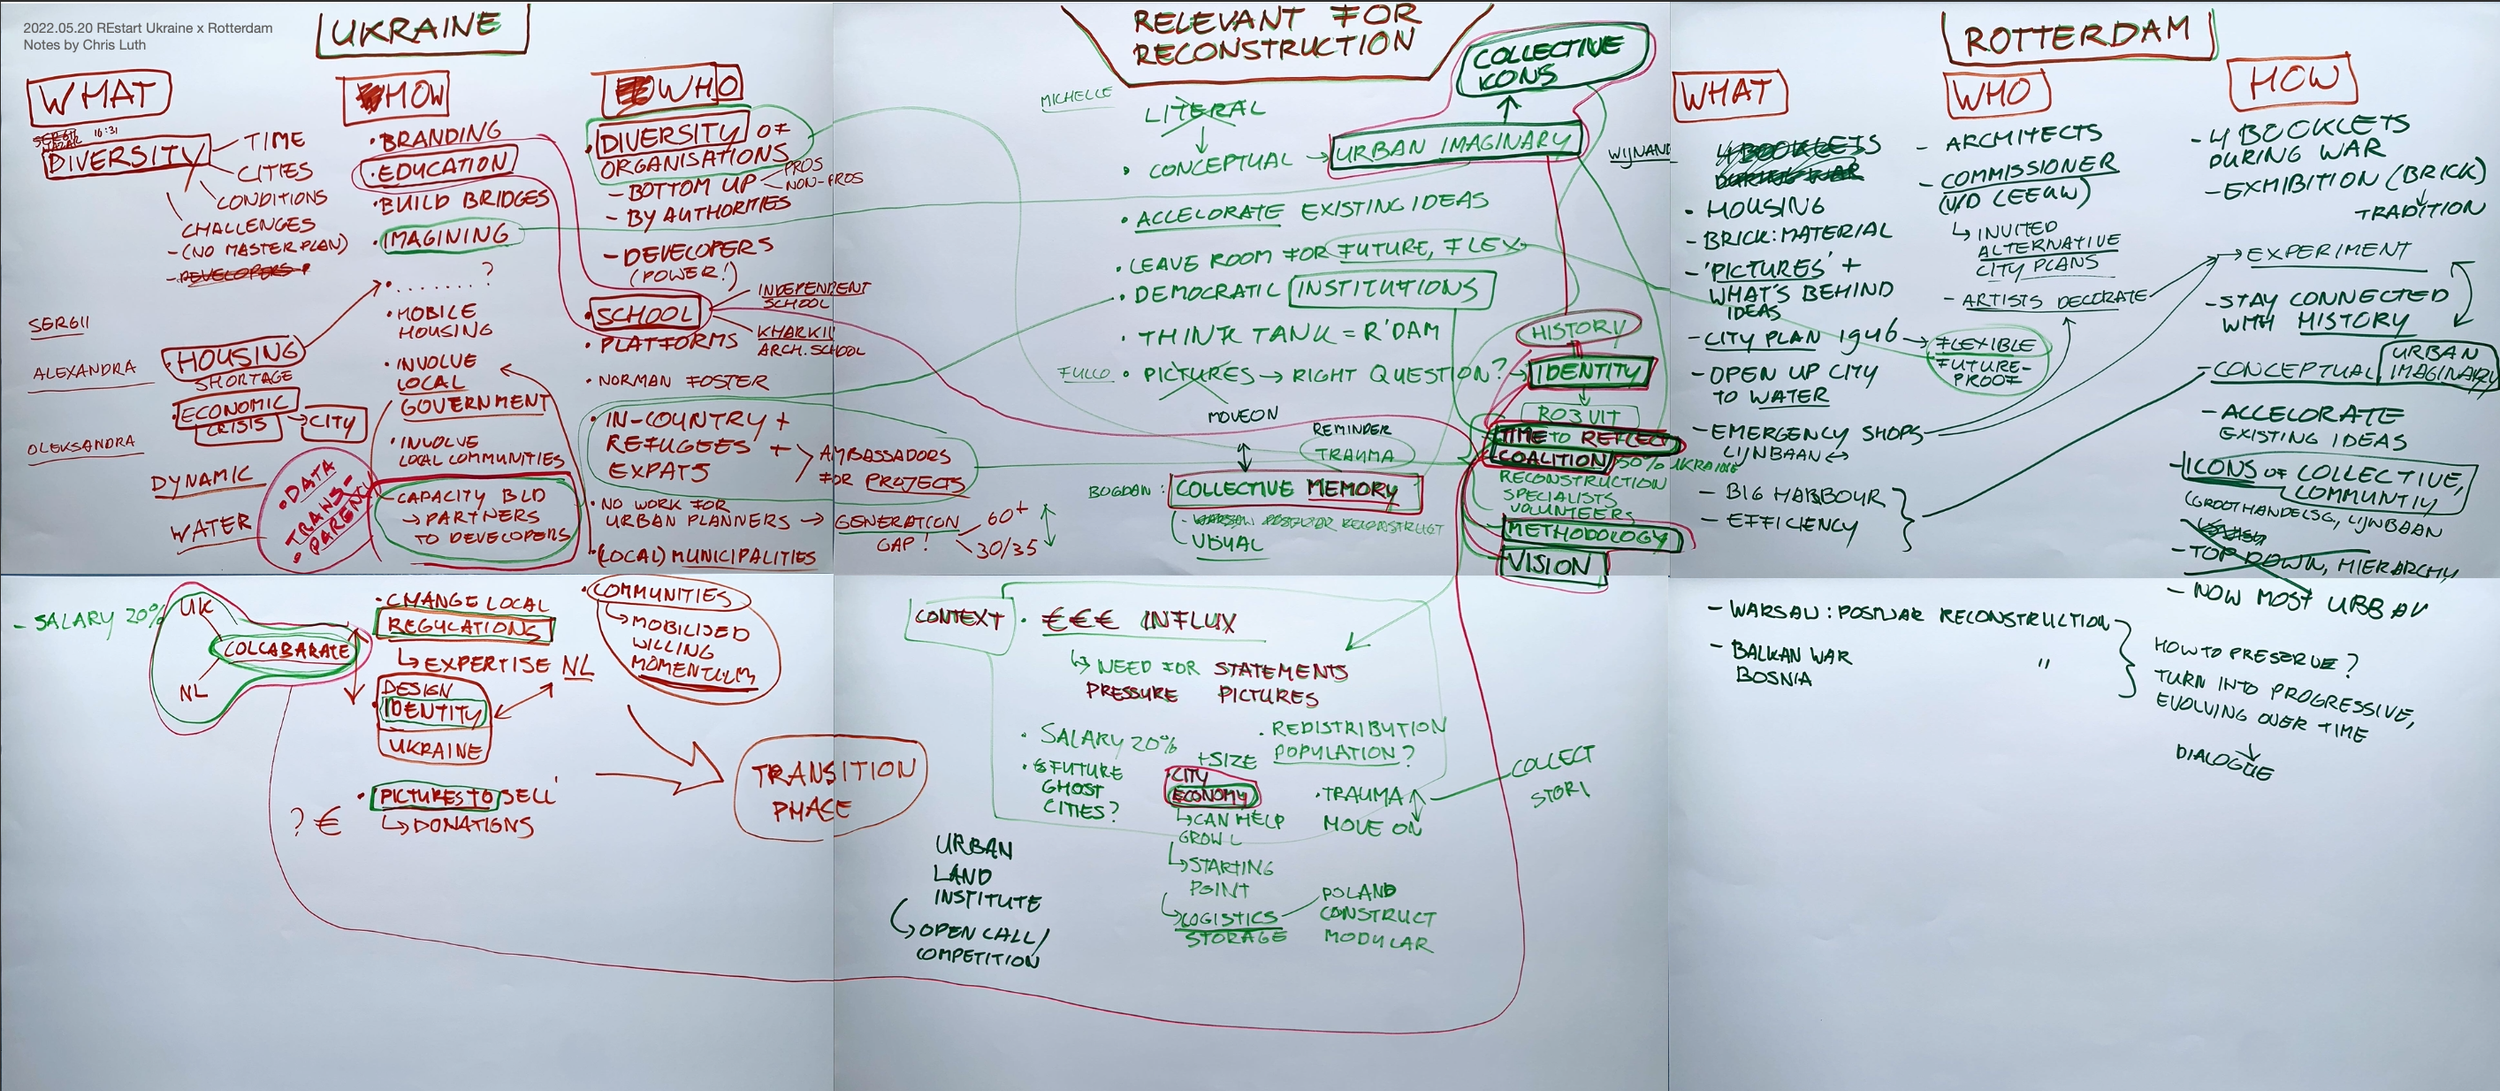 2022.05.20 REstart Ukraine x Rotterdam
Notes by Chris Luth
UKRAINE
WHAT
DIVERSITY
TIME
CITIES
CONDITIONS
CHALLENGES
- (NO MASTERPLAN)
- DEVELOPERS
SERGII
ALEXANDRA
OLEKSANDRA
• HOUSING
SHORTAGE
• ECONOMIC
CRISIS
→ CITY
DYNAMIC
WATER
• DATA
TRANS-
PARENCY
HOW
• BRANDING
• EDUCATION
• BUILD BRIDGES
• IMAGINING
• ........ ?
• MOBILE
HOUSING
• INVOLVE
LOCAL
GOVERNMENT
• INVOLVE
LOCAL COMMUNITIES
- CAPACITY BLD
→ PARTNERS
TO DEVELOPERS
WHO
• DIVERSITY OF
ORGANISATIONS
- BOTTOM UP
PROS
NON-PROS
- BY AUTHORITIES
- DEVELOPERS
(POWER!)
• SCHOOL
INDEPENDENT
SCHOOL
KHARKIV
ARCH. SCHOOL
• PLATFORMS
• NORMAN FOSTER
• IN-COUNTRY +
REFUGEES +
EXPATS
AMBASSADORS
FOR PROJECTS
• NO WORK FOR
URBAN PLANNERS →
GENERATION
GAP!
60+
30/35
• (LOCAL) MUNICIPALITIES
- SALARY 20%
UK
COLLABARATE
NL
• CHANGE LOCAL
REGULATIONS
↳ EXPERTISE NL
DESIGN
• IDENTITY
UKRAINE
• PICTURES TO SELL
↳ DONATIONS
? €
• COMMUNITIES
↳ MOBILISED
WILLING
MOMENTUM
TRANSITION
PHASE
RELEVANT FOR
RECONSTRUCTION
COLLECTIVE
ICONS
MICHELLE
LITERAL
• CONCEPTUAL → URBAN IMAGINARY
WIJNAND
• ACCELORATE EXISTING IDEAS
• LEAVE ROOM FOR FUTURE, FLEX
• DEMOCRATIC INSTITUTIONS
• THINK TANK = R'DAM
HISTORY
FULCO • PICTURES → RIGHT QUESTION? → IDENTITY
MOVE ON
RO3VIT
REMINDER
TRAUMA
TIME TO REFLECT
COALITION 50% UKRAINE
RECONSTRUCTION
SPECIALISTS
VOLUNTEERS
BOGDAN: COLLECTIVE MEMORY
- WARSAW POSTWAR RECONSTRUCT
- VISUAL
METHODOLOGY
VISION
CONTEXT
• €€€ INFLUX
↳ NEED FOR STATEMENTS
PRESSURE PICTURES
• SALARY 20%
• FUTURE
GHOST
CITIES?
• REDISTRIBUTION
POPULATION?
+SIZE
CITY
ECONOMY
↳ CAN HELP
GROW
↳ STARTING
POINT
↳ LOGISTICS
STORAGE
POLAND
CONSTRUCT
MODULAR
• TRAUMA
MOVE ON
COLLECT
STORI
URBAN
LAND
INSTITUTE
↳ OPEN CALL/
COMPETITION
ROTTERDAM
WHAT
4 BOOKLETS
DURING WAR
• HOUSING
- BRICK: MATERIAL
- 'PICTURES' +
WHAT'S BEHIND
IDEAS
- CITY PLAN 1946 →
FLEXIBLE
FUTURE-
PROOF
- OPEN UP CITY
TO WATER
- EMERGENCY SHOPS
LIJNBAAN
- BIG HARBOUR
- EFFICIENCY
WHO
- ARCHITECTS
- COMMISSIONER
(V/D LEEUW)
↳ INVITED
ALTERNATIVE
CITY PLANS
- ARTISTS DECORATE
HOW
- 4 BOOKLETS
DURING WAR
- EXHIBITION (BRICK)
TRADITION
→ EXPERIMENT
- STAY CONNECTED
WITH HISTORY
- CONCEPTUAL URBAN
IMAGINARY
- ACCELORATE
EXISTING IDEAS
- ICONS OF COLLECTIVE,
COMMUNTIY
(GROOTHANDELSG, LIJNBAAN
- TOP DOWN, HIERARCHY
- NOW MOST URBBAN
- WARSAW: POSTWAR RECONSTRUCTION
- BALKAN WAR "
BOSNIA
HOW TO PRESERVE?
TURN INTO PROGRESSIVE,
EVOLVING OVER TIME
DIALOGUE